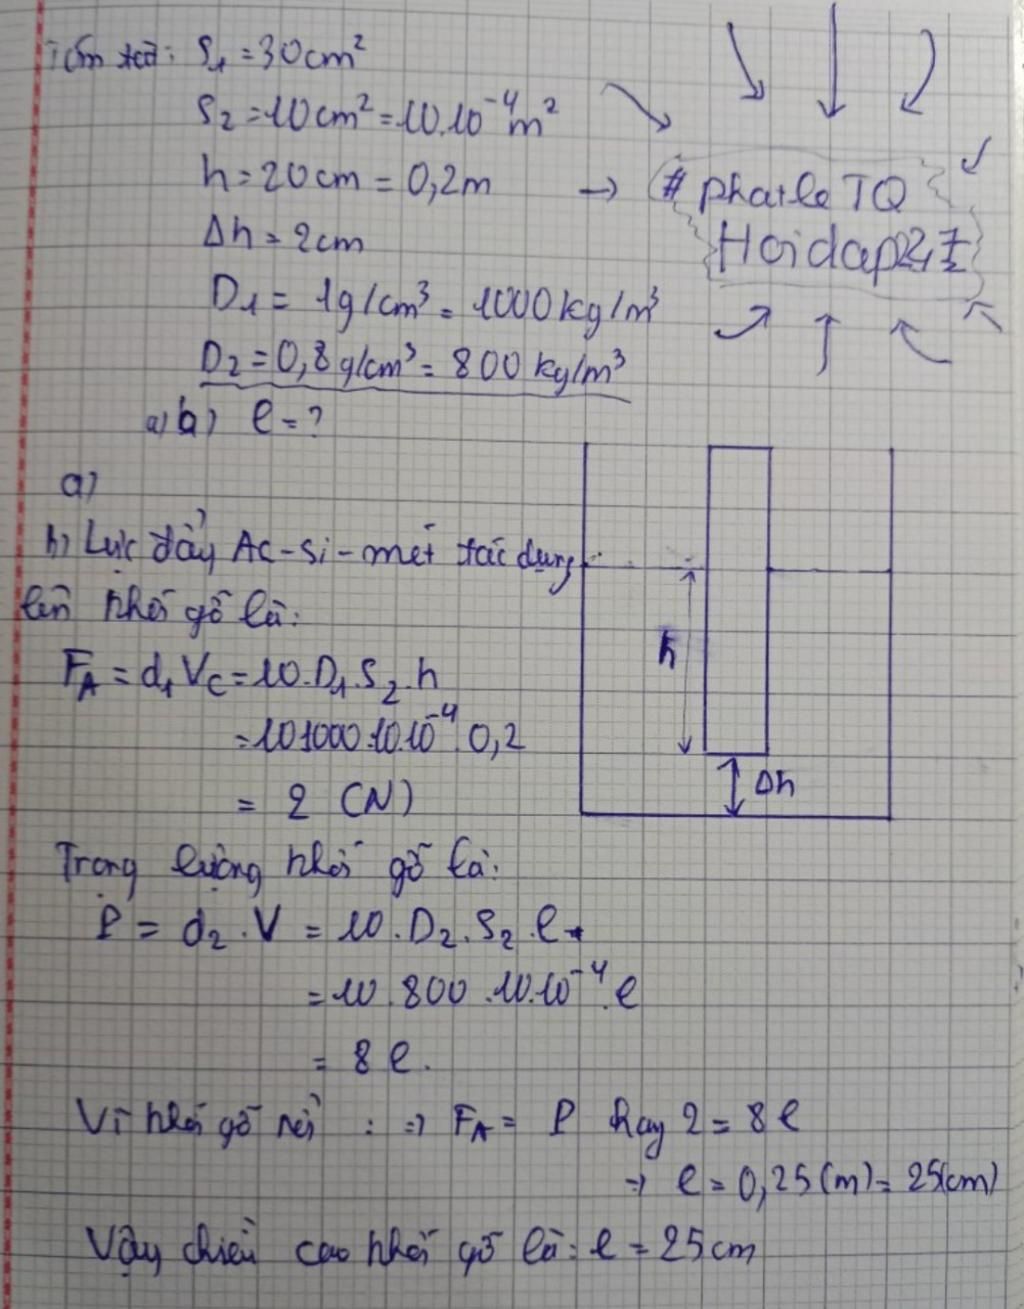 Tóm tắt: S₁ = 30cm²
S₂ = 10cm² = 10.10⁻⁴m²
h = 20cm = 0,2m
→ # phatle TQ
Hoidap247
Δh = 2cm
D₁ = 1g/cm³ = 1000kg/m³
D₂ = 0,8g/cm³ = 800kg/m³
a) b) l = ?
a)
b) Lực đẩy Ac-si-mét tác dụng
lên khối gỗ là:
F_A = d₁V_C = 10.D₁.S₂.h
= 10.1000.10.10⁻⁴.0,2
= 2 (N)
h
Δh
Trọng lượng khối gỗ là:
P = d₂.V = 10.D₂.S₂.l
= 10.800.10.10⁻⁴.l
= 8l.
Vì khối gỗ nổi : ⇒ F_A = P hay 2 = 8l
⇒ l = 0,25(m) = 25(cm)
Vậy chiều cao khối gỗ là: l = 25cm